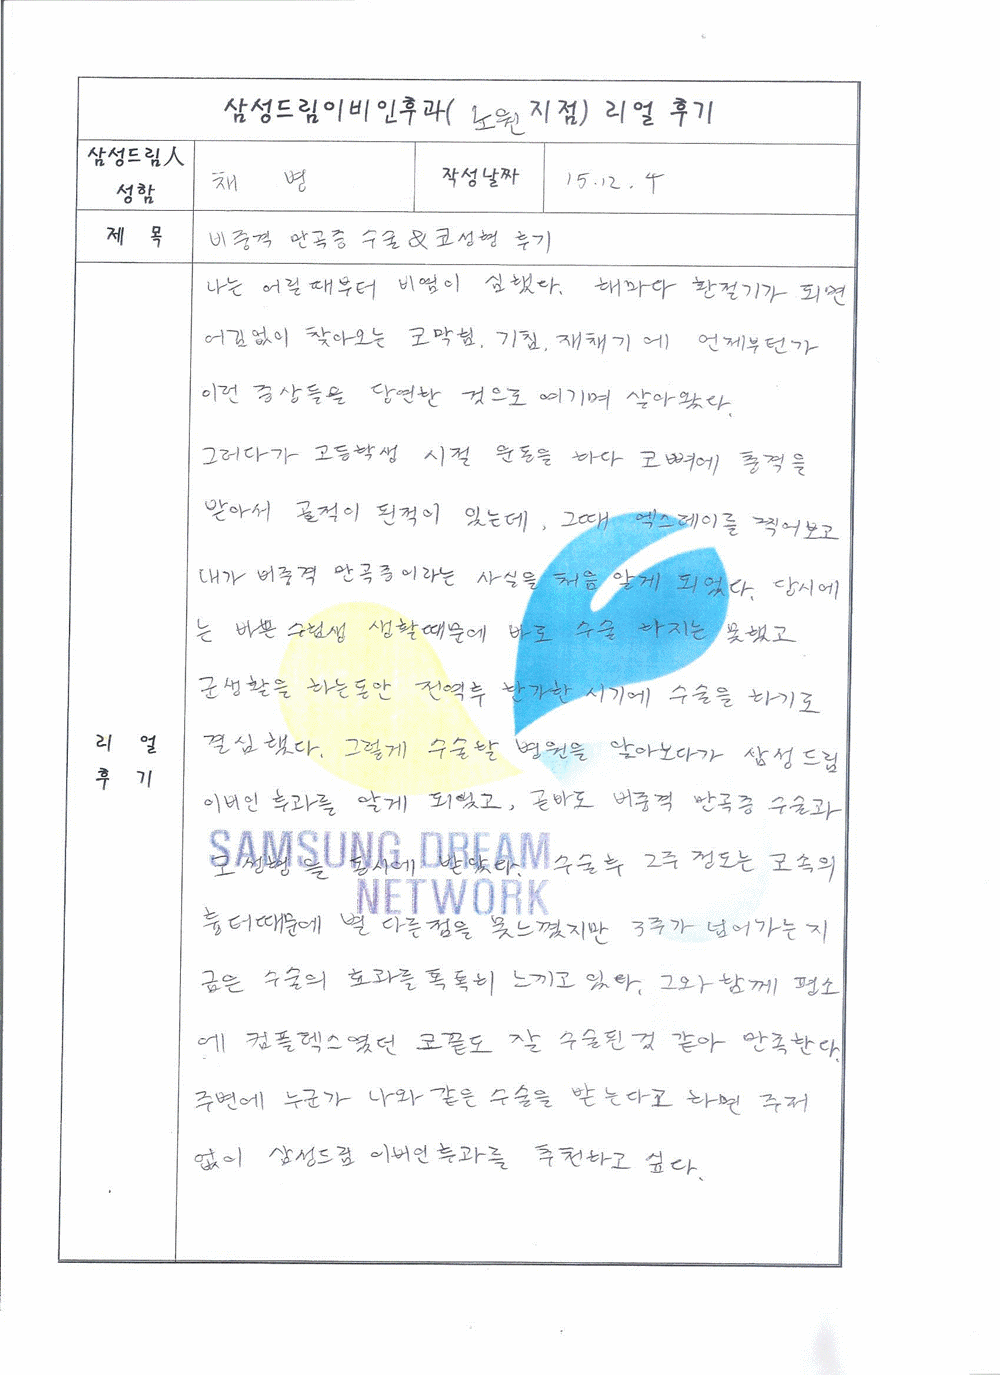 삼성드림이비인후과( 노원 지점) 리얼 후기
삼성드림人 성함
채 병
작성날짜
15.12.4
제 목
비중격 만곡증 수술 & 코성형 후기
리 얼
후 기
나는 어릴때부터 비염이 심했다. 해마다 환절기가 되면
어김없이 찾아오는 코막힘, 기침, 재채기에 언제부턴가
이런 증상들을 당연한 것으로 여기며 살아왔다.
그러다가 고등학생 시절 운동을 하다 코뼈에 충격을
받아서 골절이 된적이 있는데, 그때 엑스레이를 찍어보고
내가 비중격 만곡증이라는 사실을 처음 알게 되었다. 당시에
는 바쁜 수험생 생활때문에 바로 수술 하지는 못했고
군생활을 하는동안 전역후 한가한 시기에 수술을 하기로
결심했다. 그렇게 수술할 병원을 알아보다가 삼성드림
이비인후과를 알게 되었고, 곧바로 비중격 만곡증 수술과
코성형을 동시에 받았다. 수술후 2주 정도는 코속의
흉터때문에 별 다른점을 못느꼈지만 3주가 넘어가는 지
금은 수술의 효과를 톡톡히 느끼고 있다. 그와 함께 평소
에 컴플렉스였던 코끝도 잘 수술된 것 같아 만족한다.
주변에 누군가 나와 같은 수술을 받는다고 하면 주저
없이 삼성드림 이비인후과를 추천하고 싶다.
SAMSUNG DREAM
NETWORK